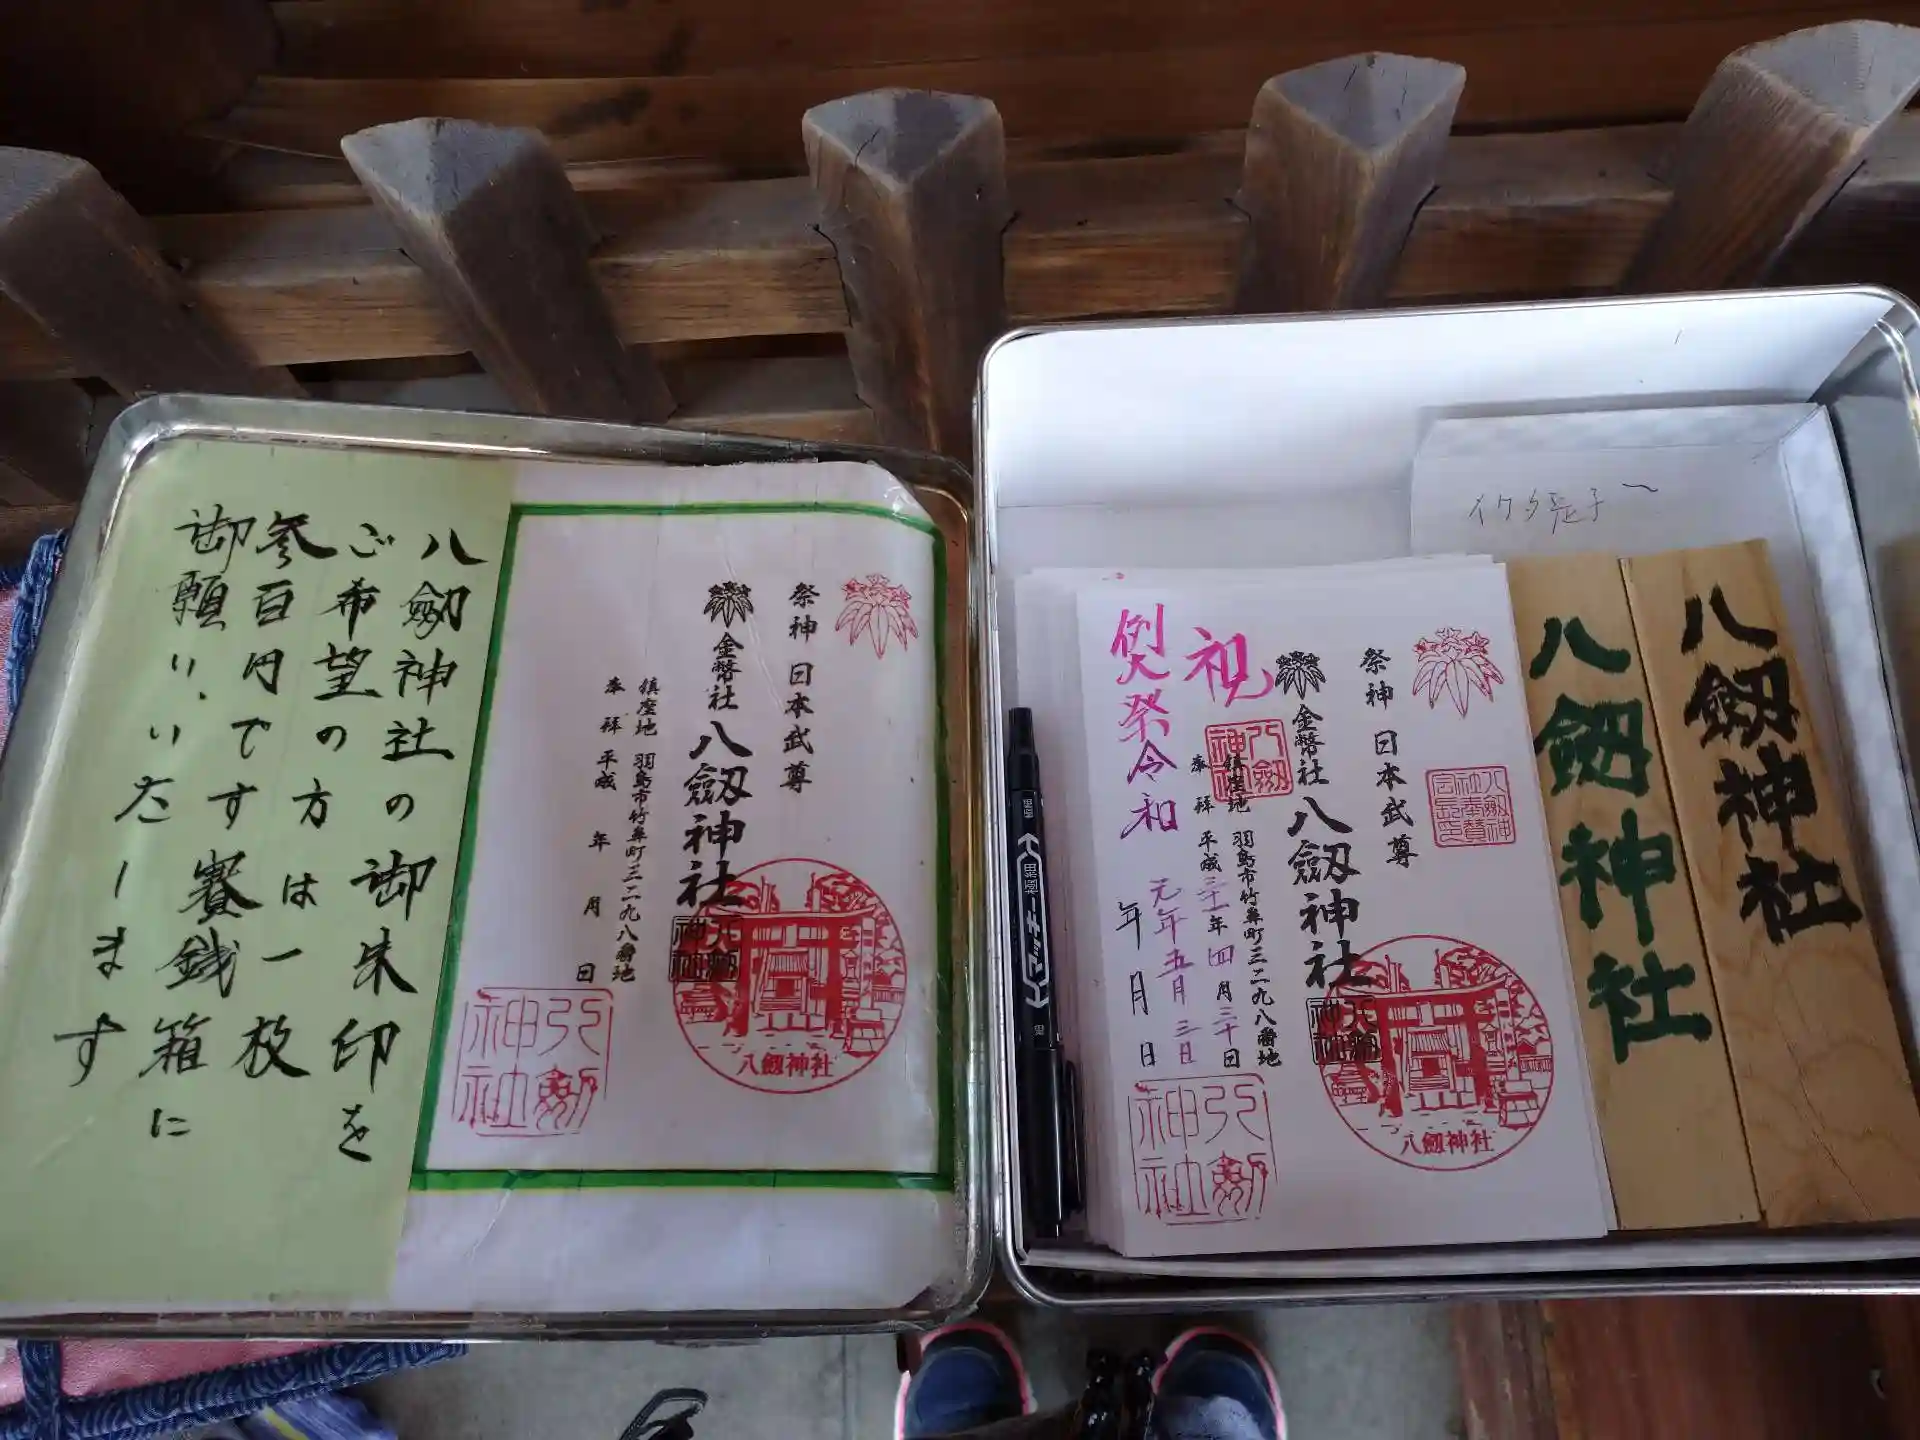 八劔神社の御朱印を
ご希望の方は一枚
参百円です賽銭箱に
御願いいたーます
祭神 日本武尊
金幣社 八劔神社
鎮座地 羽島市竹鼻町三二九八番地
奉拝 平成 年 月 日
八劔神社
八劔神社
祭神 日本武尊
金幣社 八劔神社
鎮座地 羽島市竹鼻町三二九八番地
奉拝 平成三十一年四月三十日
祝
例祭 令和 元年五月三日
年 月 日
八劔神社
八劔神社
八劔神社
八劔神社
八劔神社
マッキー